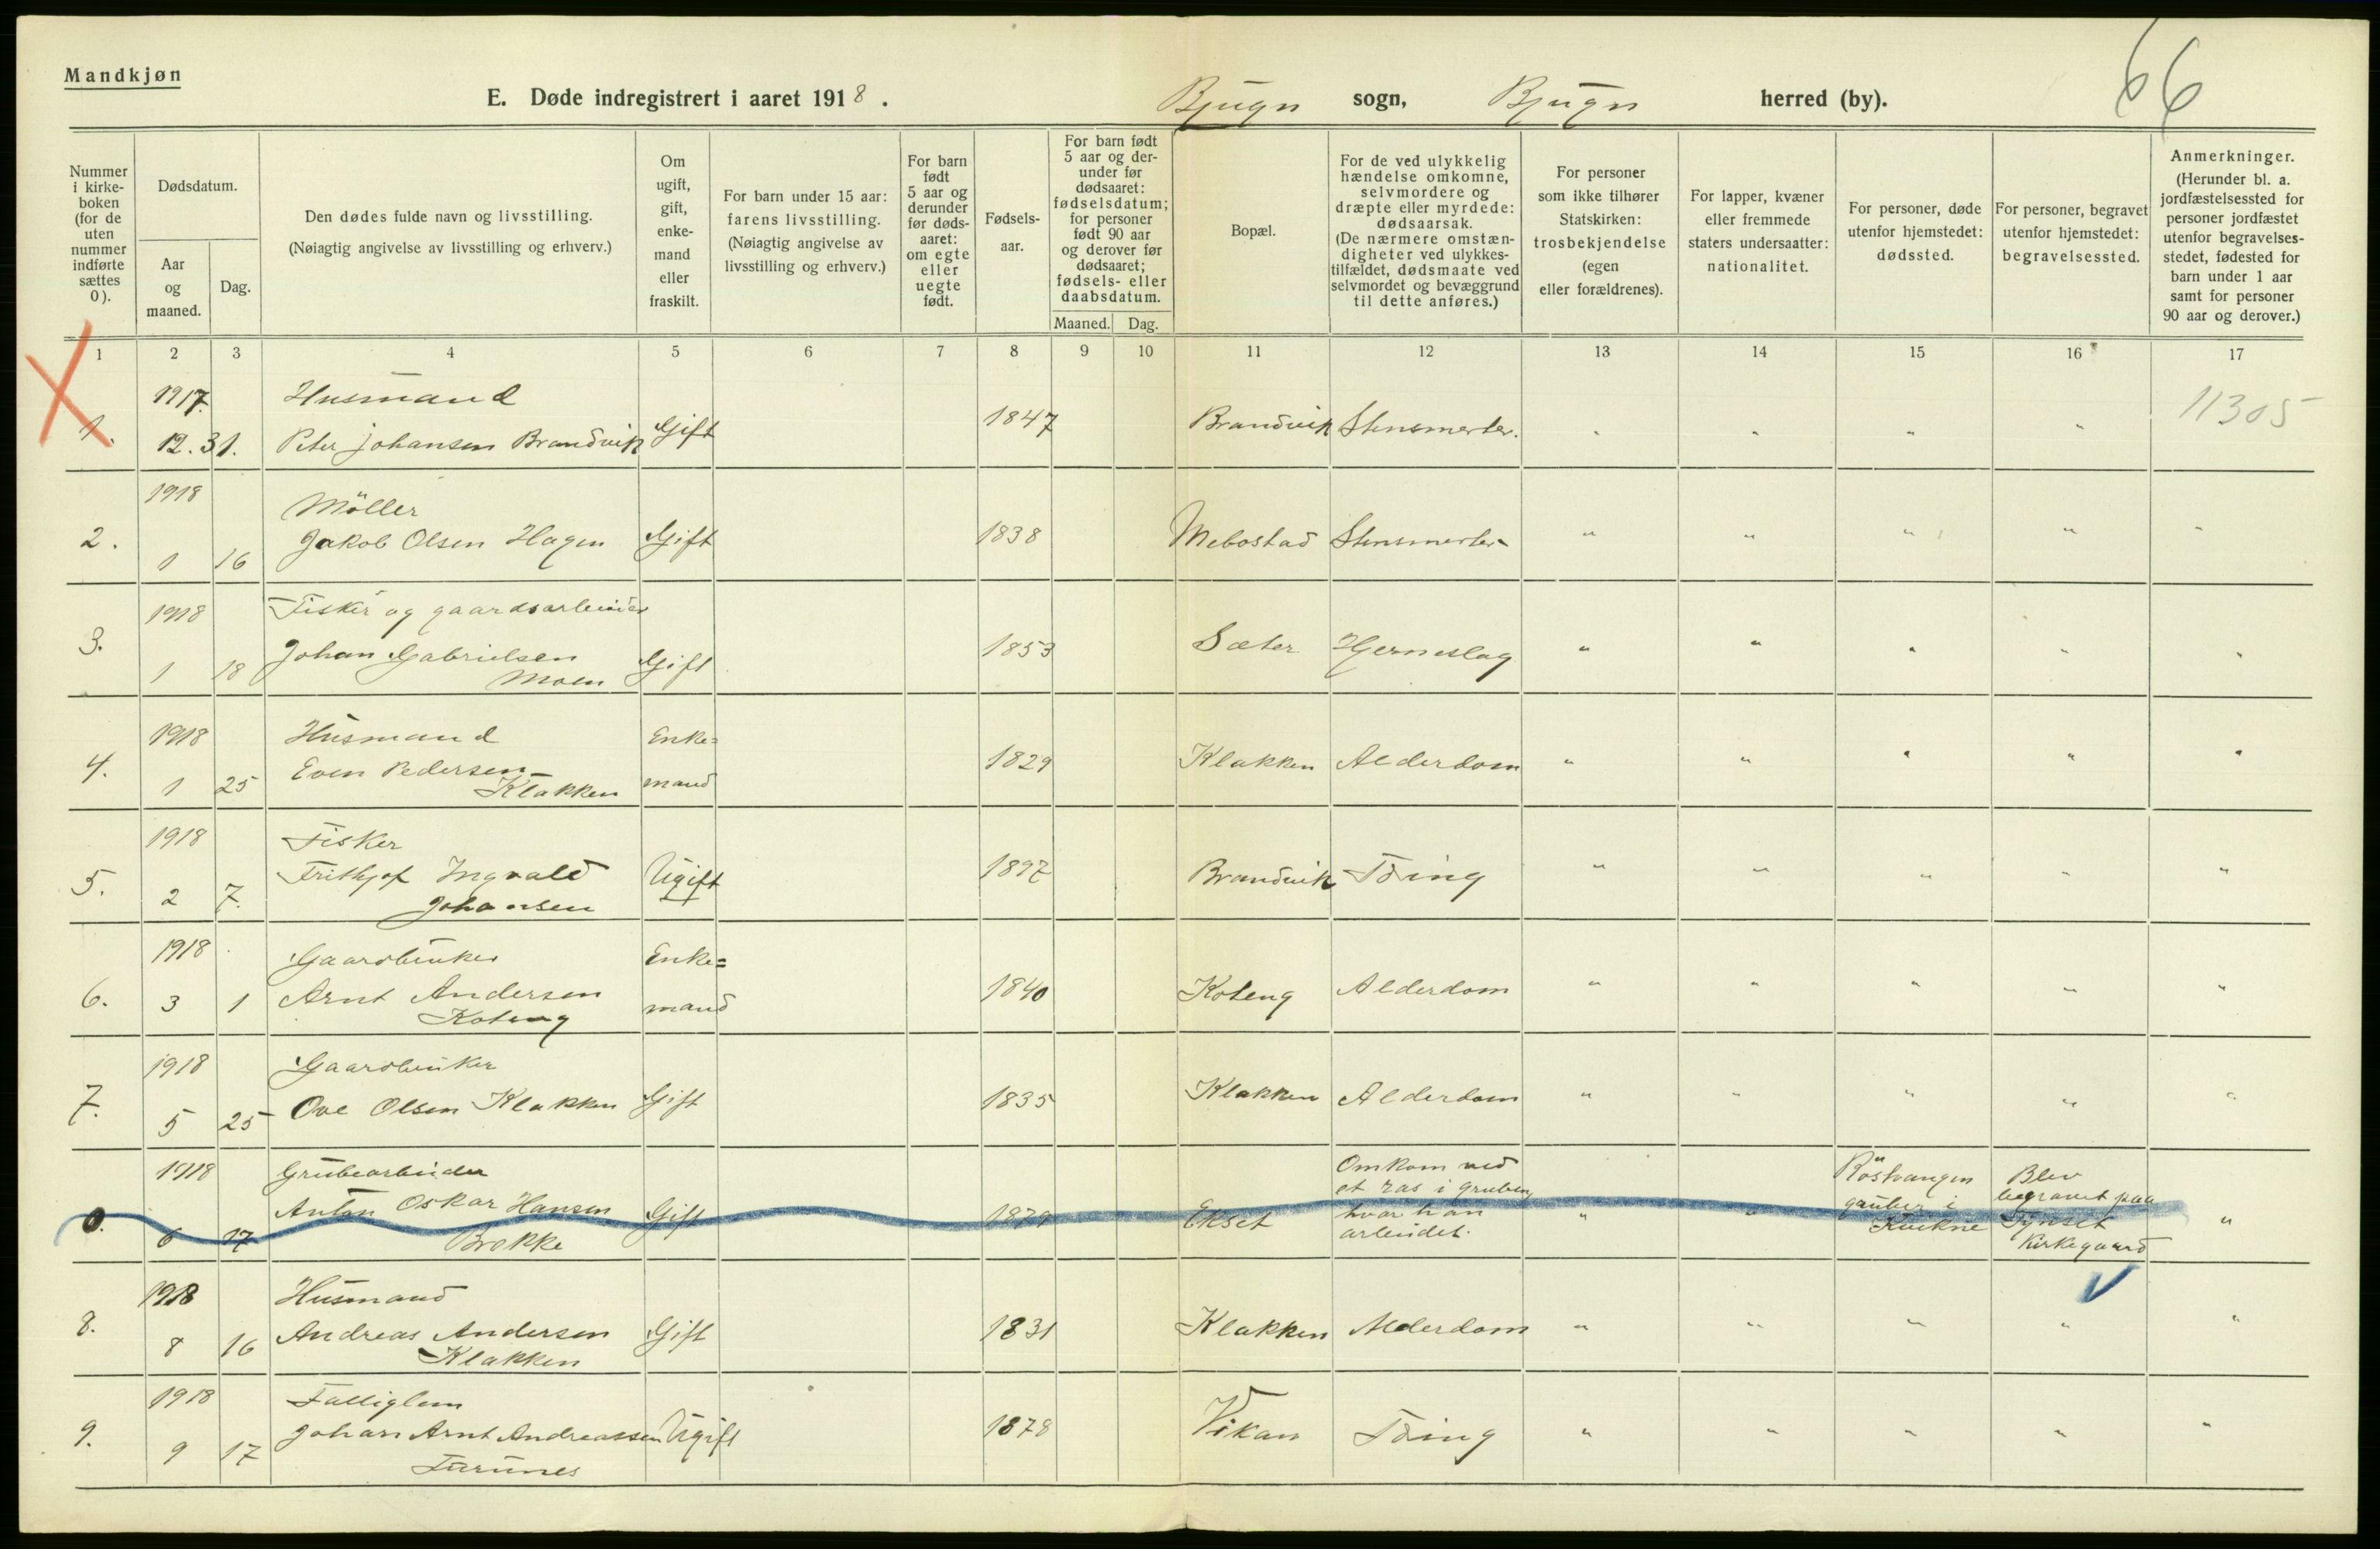 Mandkjøn
E. Døde indregistrert i aaret 1918. Bjugn sogn, Bjugn herred (by).
66
Nummer i kirke- boken (for de uten nummer indførte sættes 0).
Dødsdatum.
Aar og maaned.
Dag.
Den dødes fulde navn og livsstilling.
(Nøiagtig angivelse av livsstilling og erhverv.)
Om ugift, gift, enke- mand eller fraskilt.
For barn under 15 aar: farens livsstilling. (Nøiagtig angivelse av livsstilling og erhverv.)
For barn født 5 aar og derunder før døds- aaret: om egte eller uegte født.
Fødsels- aar.
For barn født 5 aar og der- under før dødsaaret: fødselsdatum; for personer født 90 aar og derover før dødsaaret; fødsels- eller daabsdatum.
Maaned. Dag.
Bopæl.
For de ved ulykkelig hændelse omkomne, selvmordere og dræpte eller myrdede: dødsaarsak. (De nærmere omstæn- digheter ved ulykkes- tilfældet, dødsmaate ved selvmordet og bevæggrund til dette anføres.)
For personer som ikke tilhører Statskirken: trosbekjendelse (egen eller forældrenes).
For lapper, kvæner eller fremmede staters undersaatter: nationalitet.
For personer, døde utenfor hjemstedet: dødssted.
For personer, begravet utenfor hjemstedet: begravelsessted.
Anmerkninger. (Herunder bl. a. jordfæstelsessted for personer jordfæstet utenfor begravelses- stedet, fødested for barn under 1 aar samt for personer 90 aar og derover.)
1 2 3 4 5 6 7 8 9 10 11 12 13 14 15 16 17
1917. Husmand 11305
1. 12. 31. Peter Johansen Brandvik Gift 1847 Brandvik Stensmerter. " " " "
1918 Möller
2. 1 16 Jakob Olsen Hagen Gift 1838 Mebostad Stensmerter " " " " "
1918 Fisker og gaardsarbeider
3. 1 18 Johan Gabrielsen Gift 1853 Sæter Hjerneslag " " " " "
Moen
1918 Husmand Enke=
4. 1 25 Even Pedersen mand 1829 Klakken Alderdom " " " " "
Klakken
1918 Fisker
5. 2 7. Frithjof Ingvald Ugift 1897 Brandvik Tæring " " " " "
Johansen
1918 Gaardbruker Enke=
6. 3 1 Arnt Andersen mand 1840 Koteng Alderdom " " " " "
Koteng
1918 Gaardbruker
7. 5 25 Ove Olsen Klakken Gift 1835 Klakken Alderdom " " " " "
1918 Grubearbeider Omkom ved et ras i gruben, hvor han arbeidet. Röstvangen gruber i Kvikne Blev begravet paa Tynset Kirkegaard
0. 6 17 Anton Oskar Hansen Gift 1879 Ekset " " "
Brekke
1918 Husmand
8. 8 16 Andreas Andersen Gift 1831 Klakken Alderdom " " " " "
Klakken
1918 Fattiglem
9. 9 17 Johan Arnt Andreassen Ugift 1878 Vikan Tæring " " " " "
Furunes